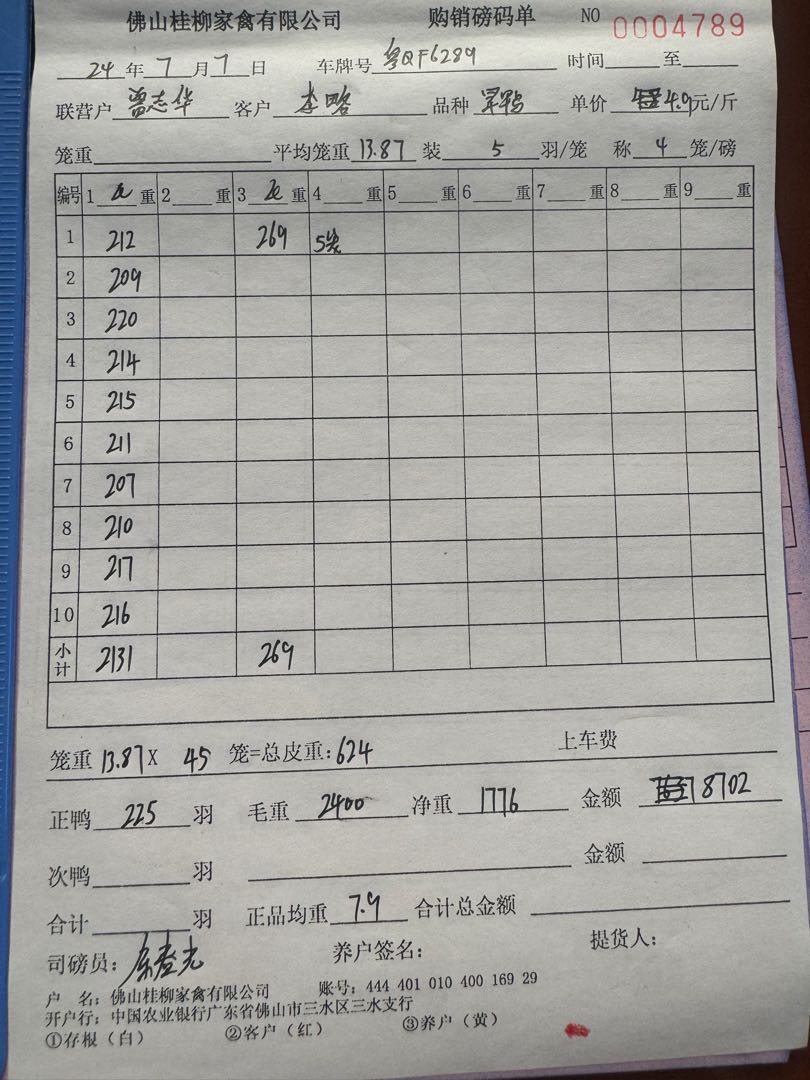 佛山桂柳家禽有限公司 购销磅码单 NO 0004789
24年7月7日 车牌号粤QF6289 时间 至
联营户 曾志华 客户 李略 品种 单价 4.9元/斤
笼重 平均笼重13.87 装 5 羽/笼 称 4 笼/磅
编号 1 毛 重 2 重 3 毛 重 4 重 5 重 6 重 7 重 8 重 9 重
1 212 269 5笼
2 209
3 220
4 214
5 215
6 211
7 207
8 210
9 217
10 216
小计 2131 269
笼重 13.87 X 45 笼=总皮重:624 上车费
正鸭 225 羽 毛重 2400 净重 1776 金额 8702
次鸭 羽 金额
合计 羽 正品均重 7.9 合计总金额
司磅员: 养户签名: 提货人:
户 名:佛山桂柳家禽有限公司 账号:444 401 010 400 169 29
开户行:中国农业银行广东省佛山市三水区三水支行
①存根(白) ②客户(红) ③养户(黄)